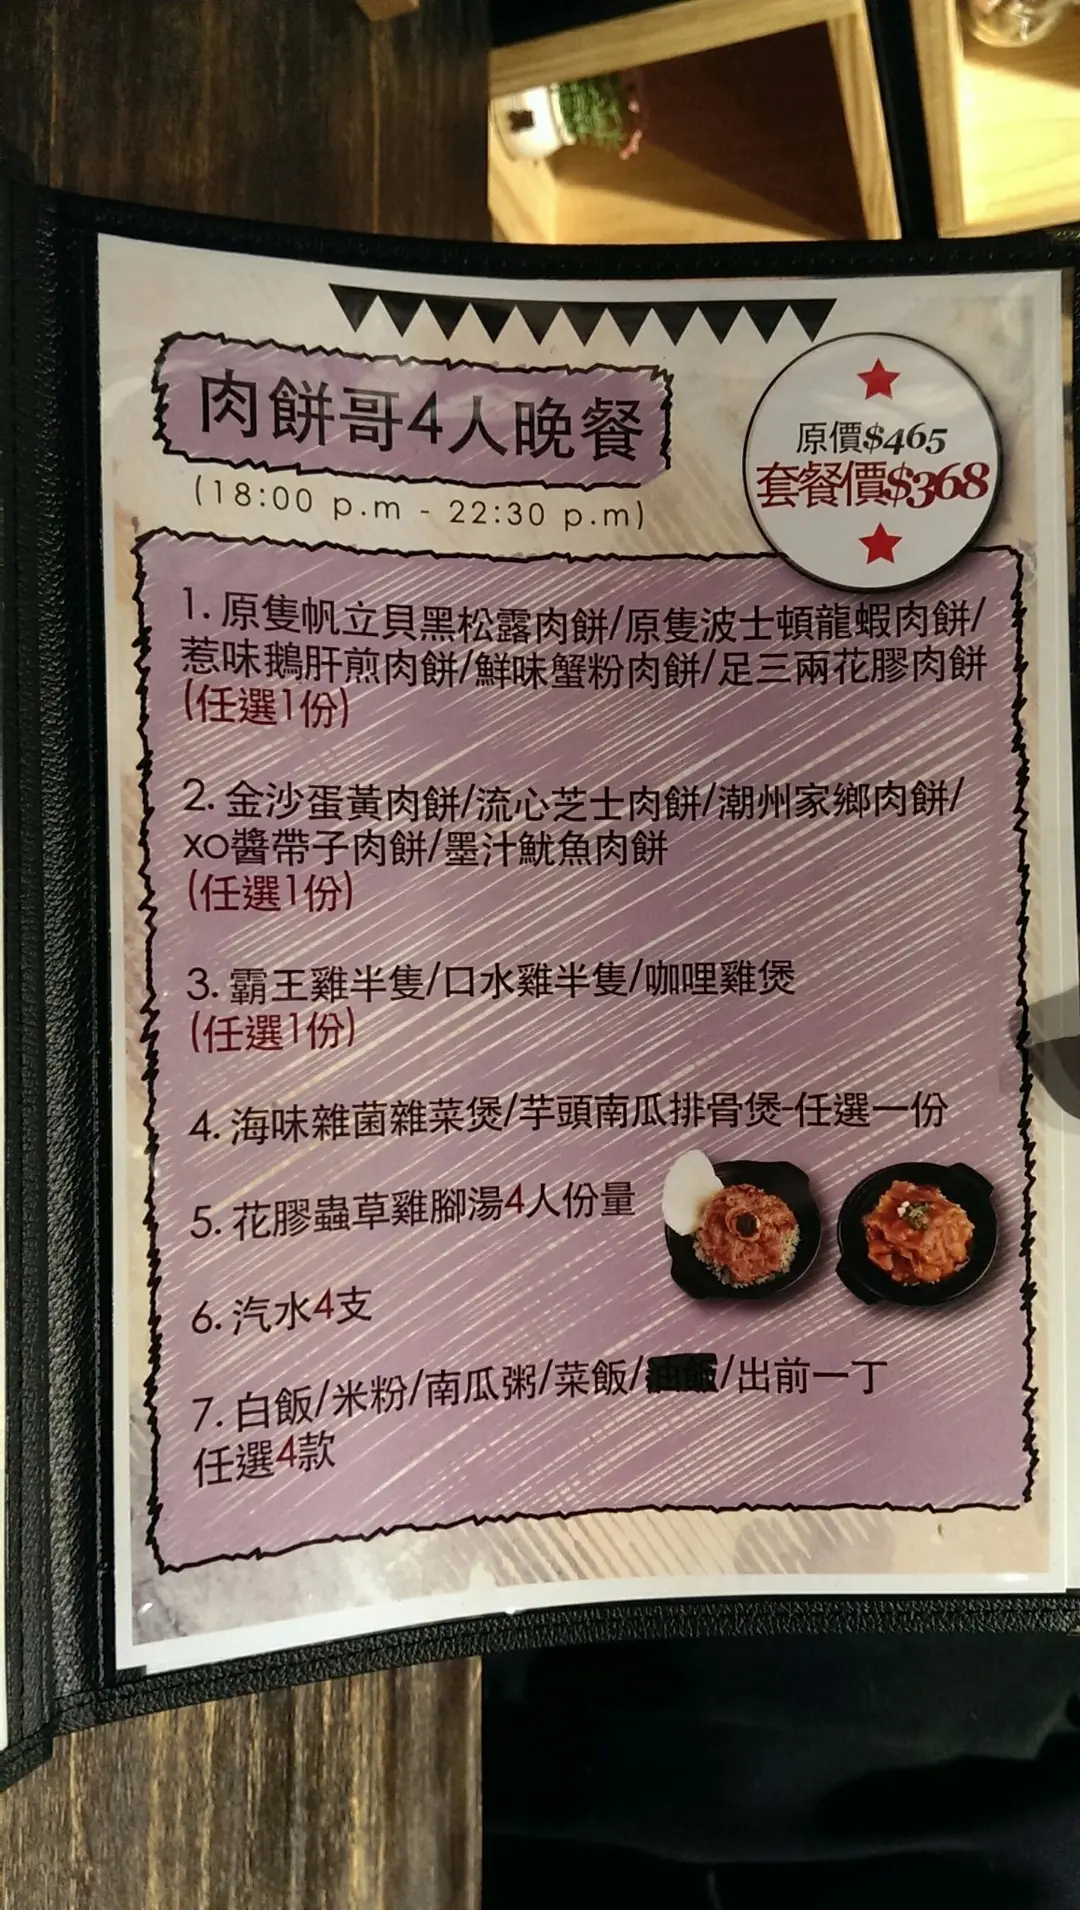 肉餅哥4人晚餐
(18:00 p.m - 22:30 p.m)
原價$465
套餐價$368
1. 原隻帆立貝黑松露肉餅/原隻波士頓龍蝦肉餅/
惹味鵝肝煎肉餅/鮮味蟹粉肉餅/足三兩花膠肉餅
(任選1份)
2. 金沙蛋黃肉餅/流心芝士肉餅/潮州家鄉肉餅/
xo醬帶子肉餅/墨汁魷魚肉餅
(任選1份)
3. 霸王雞半隻/口水雞半隻/咖哩雞煲
(任選1份)
4. 海味雜菌雜菜煲/芋頭南瓜排骨煲-任選一份
5. 花膠蟲草雞腳湯4人份量
6. 汽水4支
7. 白飯/米粉/南瓜粥/菜飯/油飯/出前一丁
任選4款